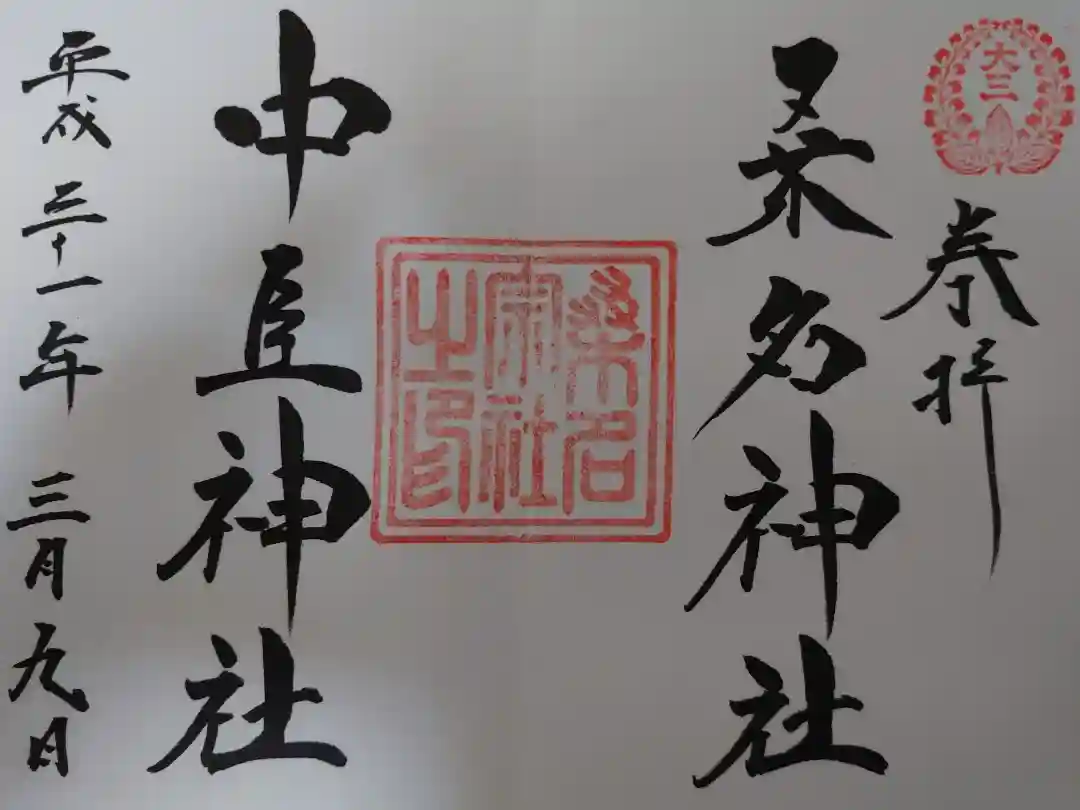 大三
奉拝
桑名神社
桑名
宗社
之印
中臣神社
平成三十一年三月九日